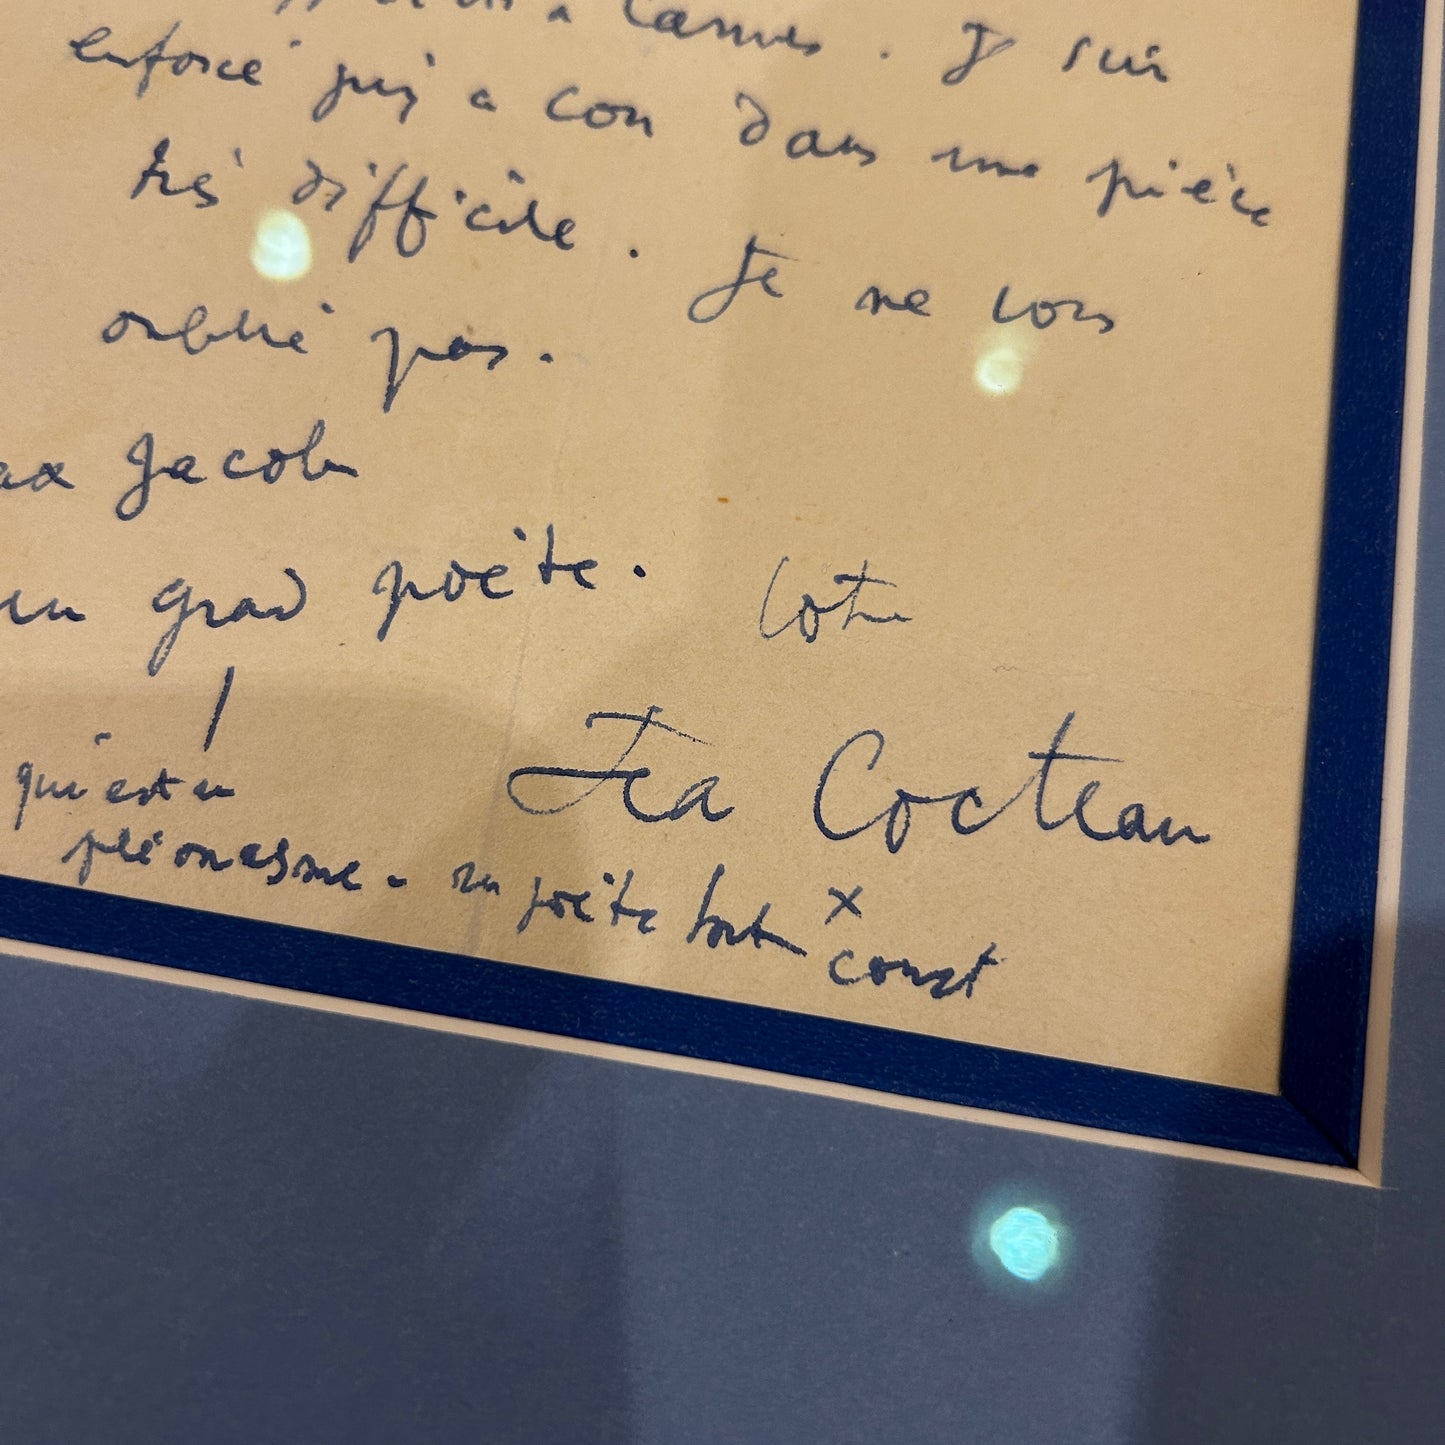 à Cannes. Je suis
enfoncé jusqu'au cou dans une pièce
très difficile. Je ne vous
oublie pas.
Max Jacob
un grand poète. Votre
Jean Cocteau
qui est un
pléonasme - un poète tout x
court